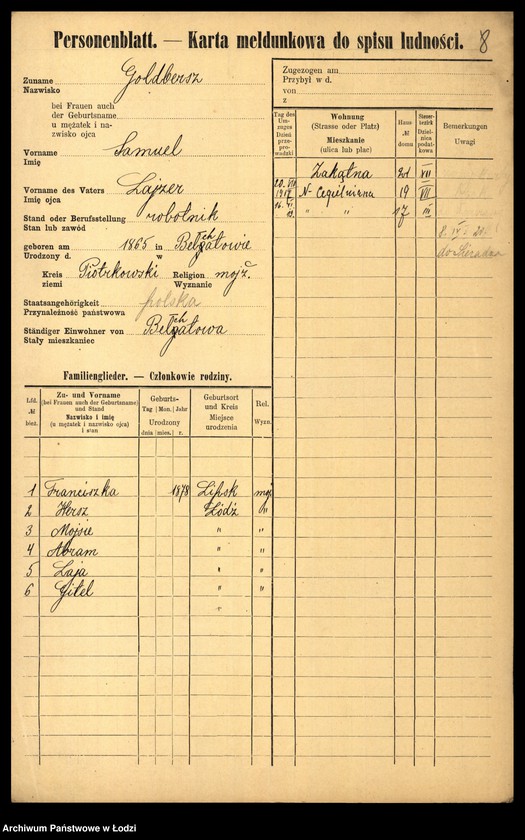 Personenblatt. — Karta meldunkowa do spisu ludności. 8
Zuname Goldbersz
Nazwisko
bei Frauen auch
der Geburtsname
u mężatek i na-
zwisko ojca
Vorname Samuel
Imię
Vorname des Vaters Lajzer
Imię ojca
Stand oder Berufsstellung robotnik
Stan lub zawód
geboren am 1865 in Bełchatowie
Urodzony d. w
Kreis Piotrkowski Religion mojż.
ziemi Wyznanie
Staatsangehörigkeit polska
Przynależność państwowa
Ständiger Einwohner von Bełchatowa
Stały mieszkaniec
Zugezogen am
Przybył w d.
von
z
Tag des Um-zuges Dzień prze-prowadzki
Wohnung
(Strasse oder Platz)
Mieszkanie
(ulica lub plac)
Haus № domu
Steuer-bezirk Dziel-nica podat-kowa
Bemerkungen
Uwagi
Zakątna VII
20. VII 1917 N- Cegielniana 19 VII
" " 17 III
do Sieradza
Familienglieder. — Członkowie rodziny.
Lfd. № bież.
Zu- und Vorname
(bei Frauen auch der Geburtsname)
und Stand
Nazwisko i imię
(u mężatek i nazwisko ojca)
i stan
Geburts-
Tag Mon. Jahr
Urodzony
dnia mies. r.
Geburtsort
und Kreis
Miejsce
urodzenia
Rel.
Wyzn.
1 Franciszka 1878 Lipsk moj.
2 Hersz Łódź "
3 Mojsie " "
4 Abram " "
5 Łaja " "
6 Gitel " "
"
Archiwum Państwowe w Łodzi